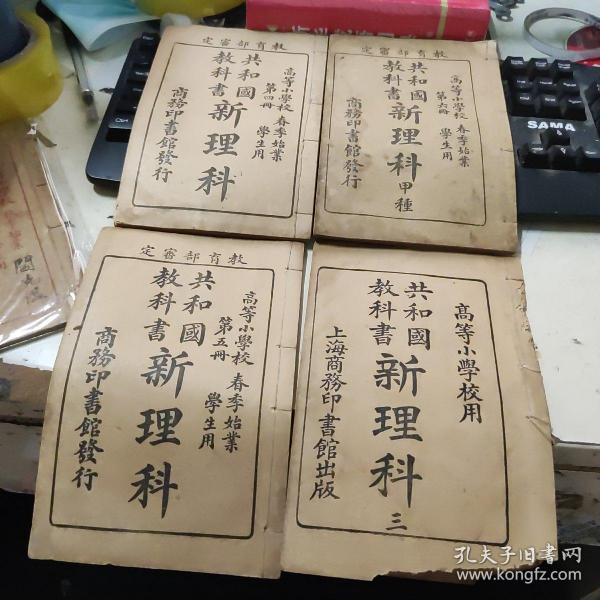 教育部審定
高等小學校 春季始業
第四冊 學生用
共和國
教科書
新理科
商務印書館發行
教育部審定
高等小學校 春季始業
第六冊 學生用
共和國
教科書
新理科
甲種
商務印書館發行
教育部審定
高等小學校 春季始業
第五冊 學生用
共和國
教科書
新理科
商務印書館發行
高等小學校用
共和國
教科書
新理科
三
上海商務印書館出版
SAMA
孔夫子旧书网
www.kongfz.com